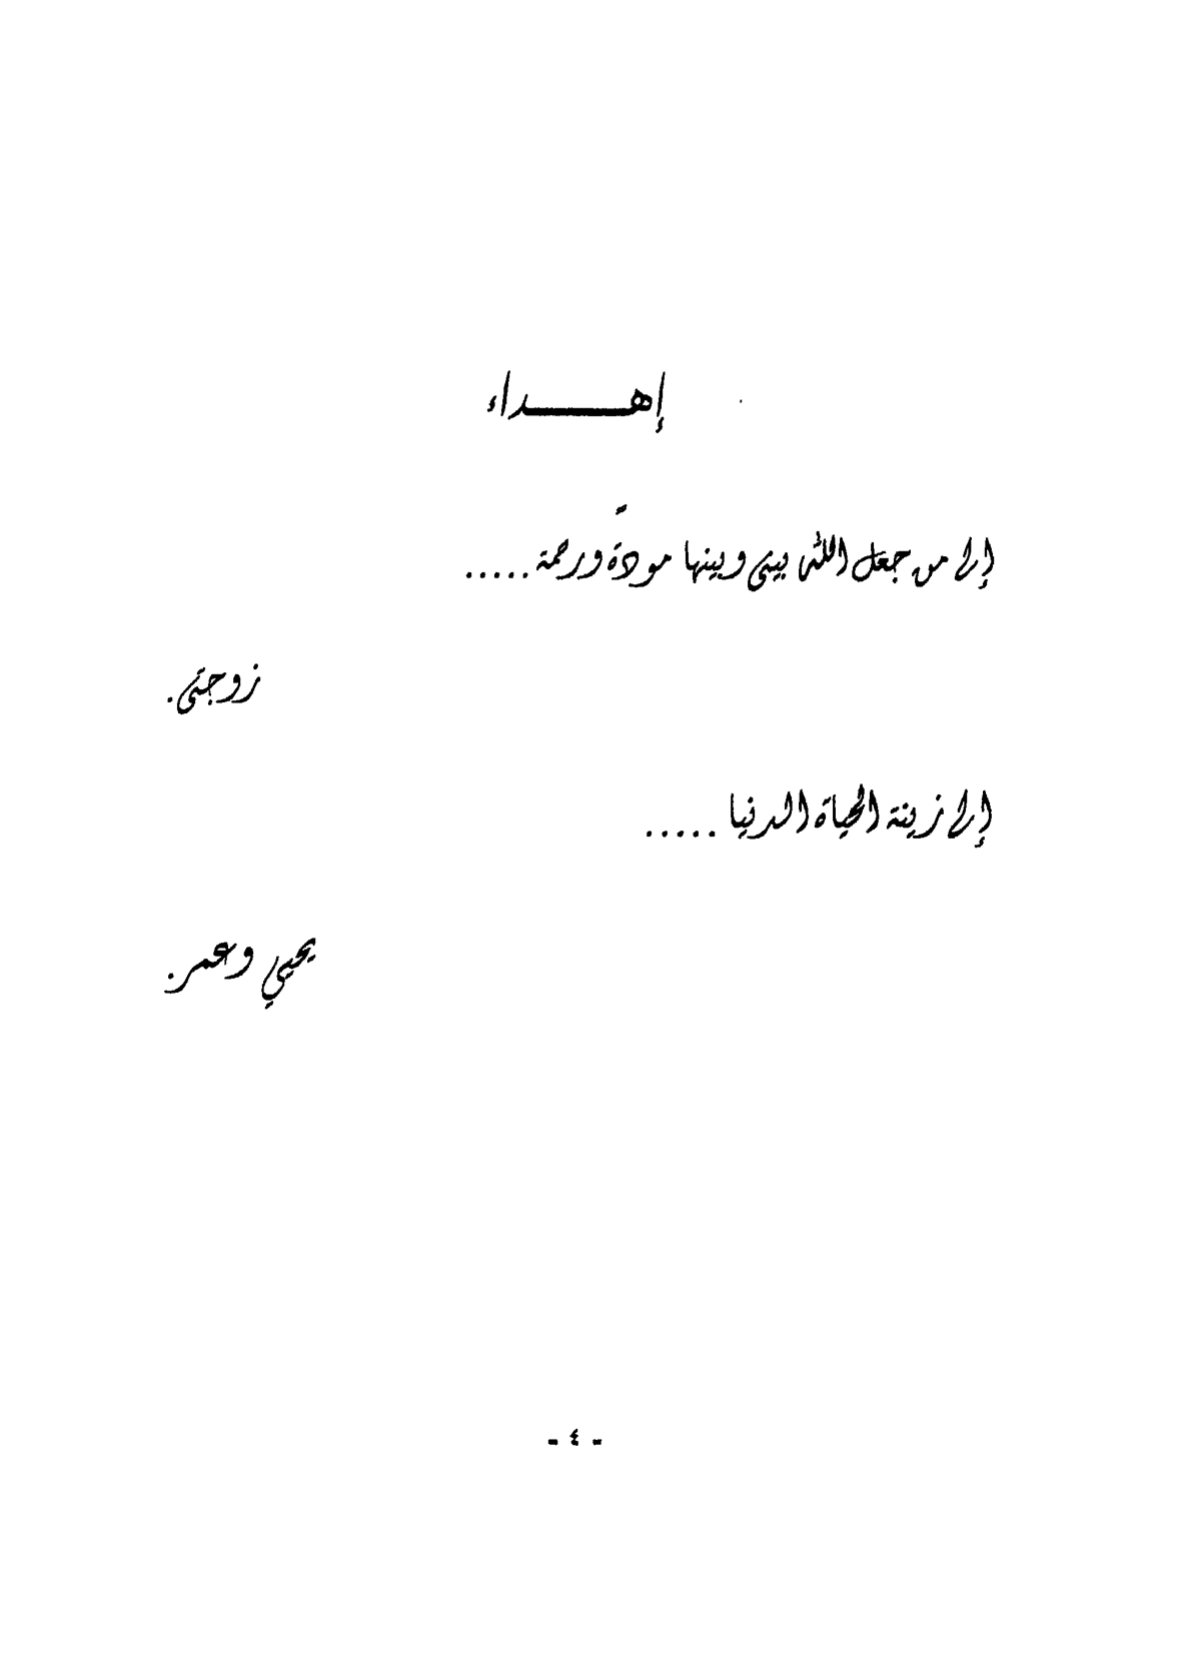 إهـــــداء
إلى من جعل الله بينى وبينها مودّة ورحمة .....
زوجتى.
إلى زينة الحياة الدنيا .....
يحيي وعمر.
- ٤ -